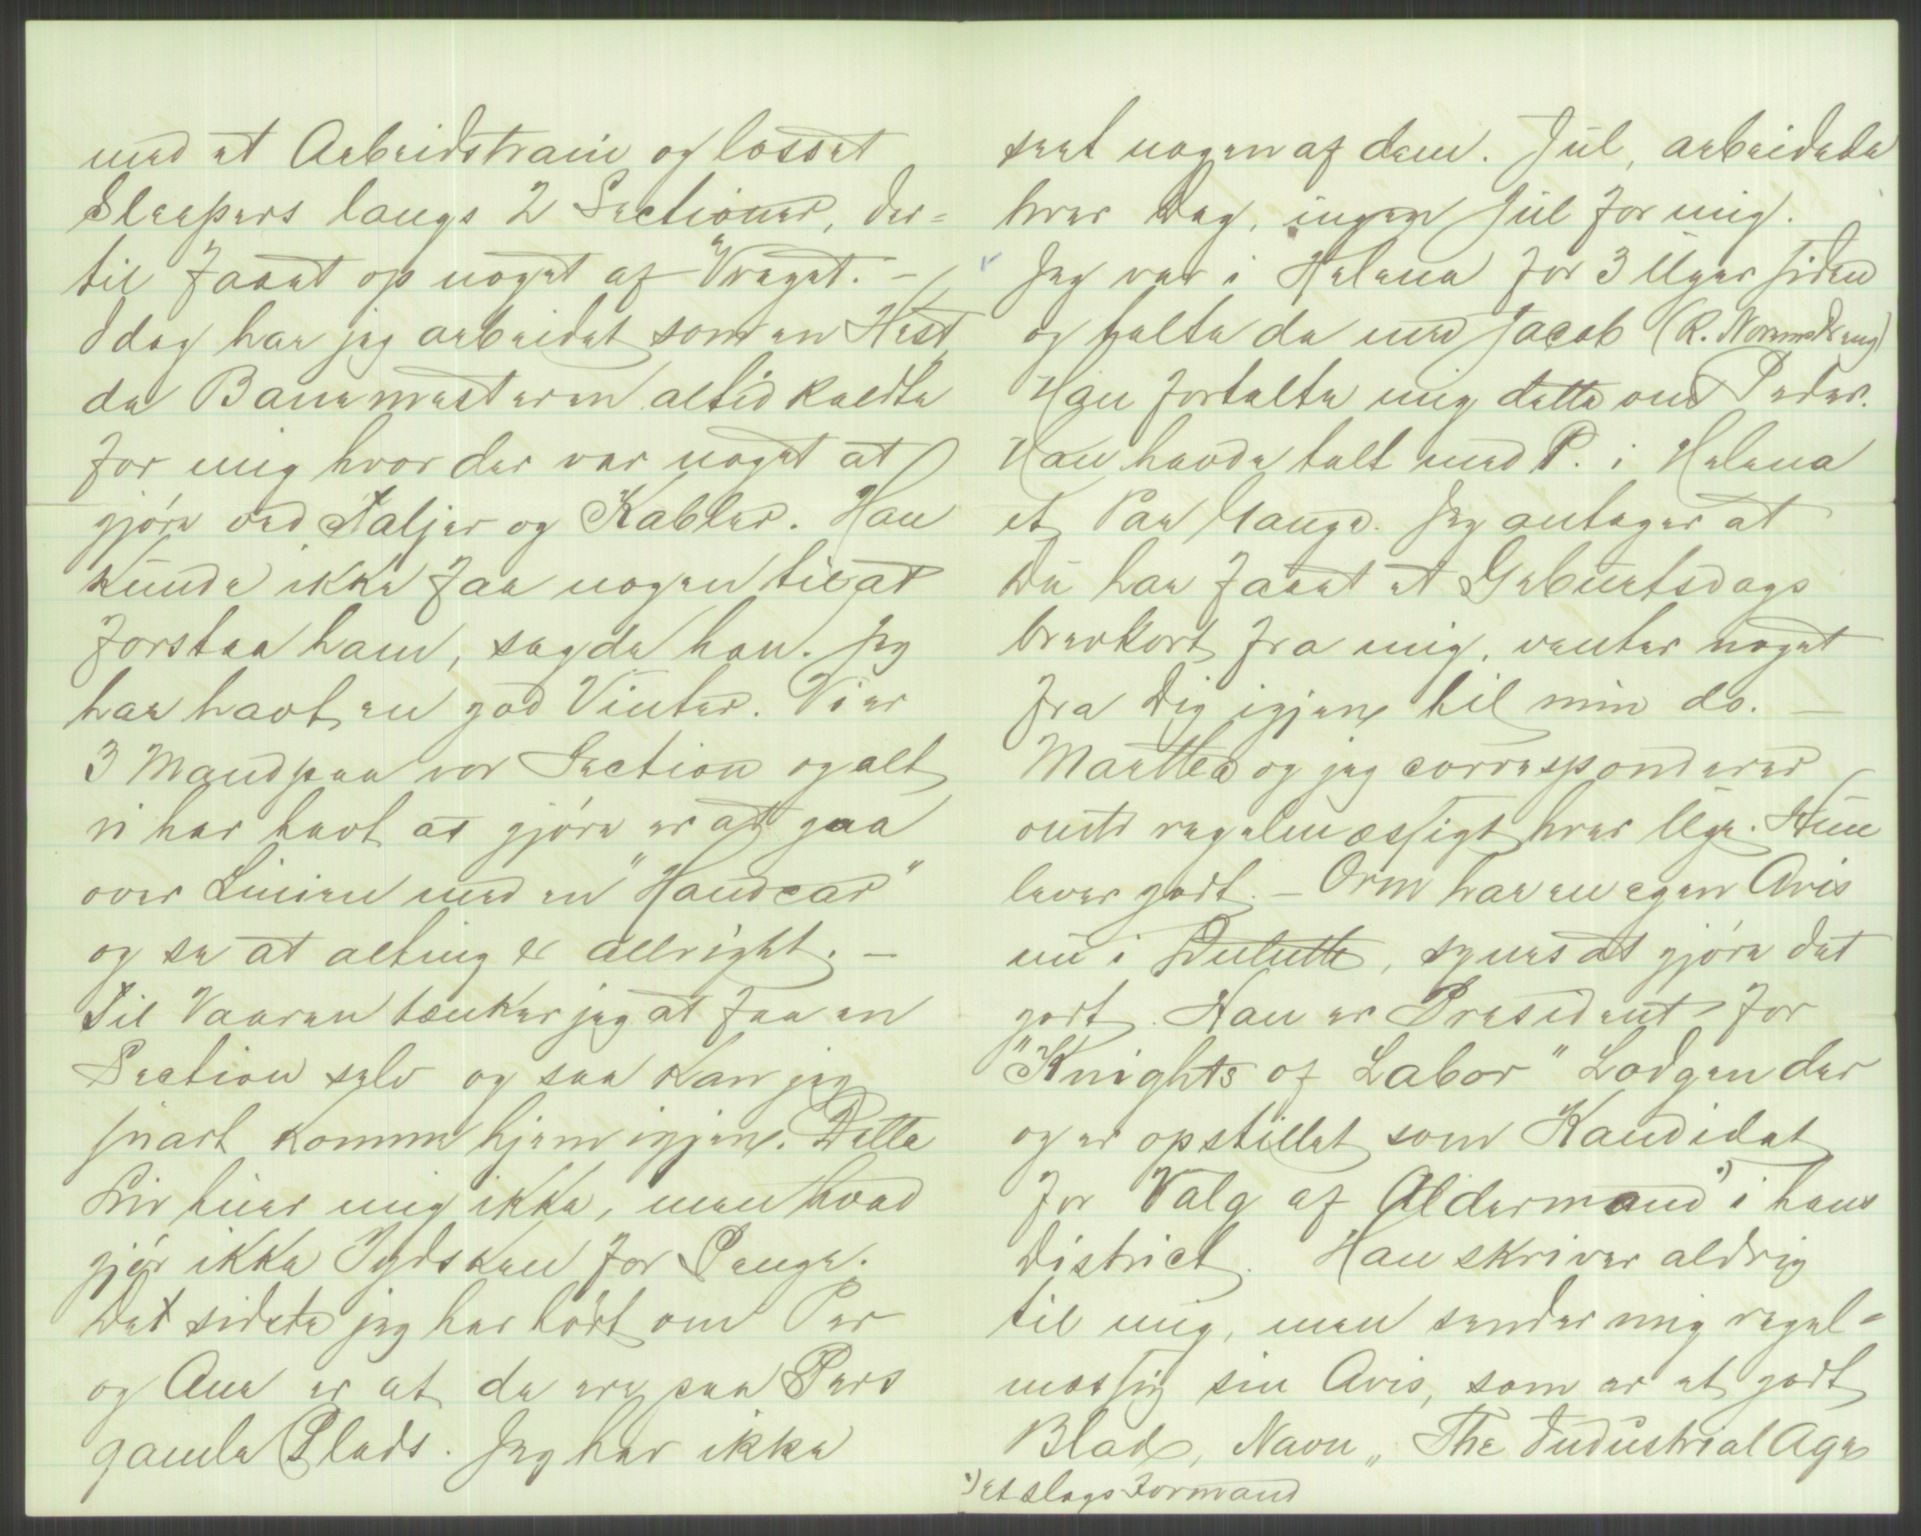 med et Arbeidstrain og losset
Sleepers langs 2 Sectioner, der=
til faaet op noget af Vraget. —
Idag har jeg arbeidet som en Hest,
da Banemesteren altid kaldte
for mig hvor der var noget at
gjøre ved Taljer og Kabler. Han
kunde ikke faa nogen til at
forstaa ham, sagde han. Jeg
har havt en god Vinter. Vi er
3 Mand paa vor Section og alt
vi har havt at gjøre er at gaa
over Linien med en "Handcar"
og se at alting er allright. —
Til Vaaren tænker jeg at faa en
Section selv og saa kan jeg
snart komme hjem igjen. Dette
Liv huer mig ikke, men hvad
gjør ikke Jydsken for Penge.
Det sidste jeg har hørt om Per
og Ane er at de ere paa Pers
gamle Plads. Jeg har ikke
seet nogen af dem. Jul, arbeidede
hver Dag, ingen Jul for mig.
Jeg var i Helena for 3 Uger siden
og talte da med Jacob (R.
Han fortalte mig dette om Peder.
Han havde talt med P. i Helena
et Par Gange. Jeg antager at
Du har faaet et Geburtsdags
brevkort fra mig, venter noget
fra Dig igjen til min do. —
Marthea og jeg corresponderer
omtr regelmæssigt hver Uge. Hun
lever godt. — Orm har en egen Avis
nu i Duluth, synes at gjøre det
godt. Han er President for
"Knights of Labor" Lodgen der
og er opstillet som Kandidat
for Valg af Aldermand *) i hans
District. Han skriver aldrig
til mig, men sender mig regel=
mæssig sin Avis, som er et godt
Blad, Navn „The Industrial Age
*) et slags Formand